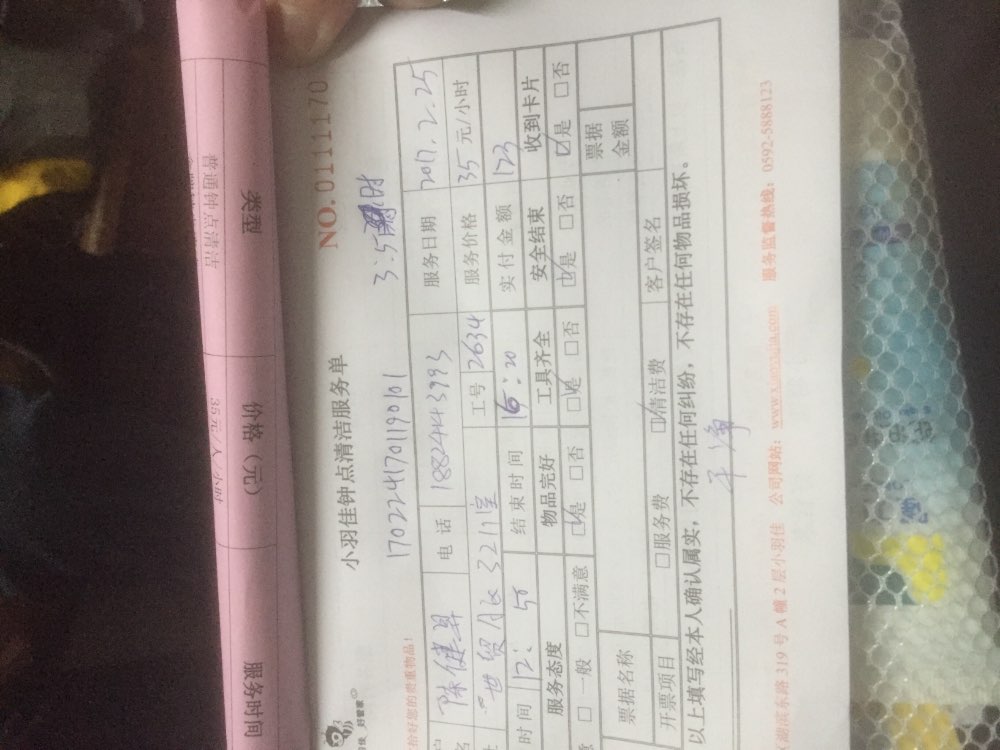 服务时间 价格（元） 类型
35元/人/小时 普通钟点清洁
好管家
小羽佳钟点清洁服务单
NO.01111170
恰好您的贵重物品！
1702241701190101
3.5小时
电话 18824443993 服务日期 2017.2.25
3211室 工号 2634 服务价格 35 元/小时
时间 12:50 结束时间 16:20 实付金额 123
服务态度 物品完好 工具齐全 安全结束 收到卡片
意 □一般 □不满意 ☑是 □否 ☑是 □否 ☑是 □否 ☑是 □否
票据名称 票据金额
开票项目 □服务费 ☑清洁费 客户签名
以上填写经本人确认属实，不存在任何纠纷，不存在任何物品损坏。
干净
(湖滨东路 319 号 A 幢 2 层小羽佳 公司网站：www.xiaoyujia.com 服务监督热线：0592-5888123